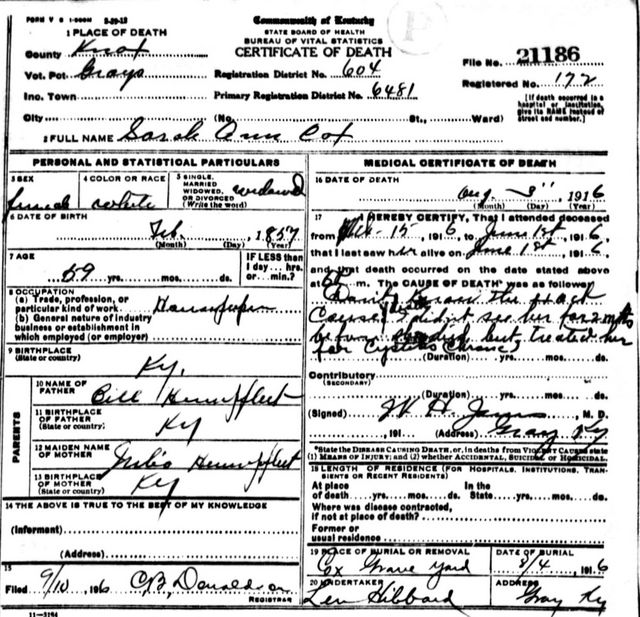 FORM V S 1-500M 5-29-15
Commonwealth of Kentucky
STATE BOARD OF HEALTH
BUREAU OF VITAL STATISTICS
CERTIFICATE OF DEATH
1 PLACE OF DEATH
County Knox
Vot. Pct. Grays
Inc. Town
City
Registration District No. 604
Primary Registration District No. 6481
(No. St., Ward)
File No. 21186
Registered No. 172
[If death occurred in a
hospital or institution,
give its NAME instead of
street and number.]
2 FULL NAME Sarah Ann Cox
PERSONAL AND STATISTICAL PARTICULARS
3 SEX
female
4 COLOR OR RACE
white
5 SINGLE,
MARRIED
WIDOWED,
OR DIVORCED
(Write the word)
widowed
6 DATE OF BIRTH
Feb. , 1857
(Month) (Day) (Year)
7 AGE
59 yrs. mos. ds.
IF LESS than
1 day... hrs.
or... min.?
8 OCCUPATION
(a) Trade, profession, or
particular kind of work
(b) General nature of industry
business or establishment in
which employed (or employer)
9 BIRTHPLACE
(State or country)
Ky.
PARENTS
10 NAME OF
FATHER
Bill Humpfleet
11 BIRTHPLACE
OF FATHER
(State or country)
Ky
12 MAIDEN NAME
OF MOTHER
Humpfleet
13 BIRTHPLACE
OF MOTHER
(State or country)
Ky
14 THE ABOVE IS TRUE TO THE BEST OF MY KNOWLEDGE
(Informant)
(Address)
15
Filed 9/10, 1916 C.B. Donaldson
REGISTRAR
11-3184
MEDICAL CERTIFICATE OF DEATH
16 DATE OF DEATH
Aug 3", 1916
(Month) (Day) (Year)
17 I HEREBY CERTIFY, That I attended deceased
from 15, 1916, to June 1st, 1916,
that I last saw her alive on June 1st, 1916,
and that death occurred on the date stated above
at m. The CAUSE OF DEATH was as follows
know the exact
Cause I didn't see her for 2 mths
but treated her
for
(Duration) yrs. mos. ds.
Contributory
(SECONDARY)
(Duration) yrs. mos. ds.
(Signed) W. H. , M. D.
, 191 (Address) Gray Ky
*State the DISEASE CAUSING DEATH, or, in deaths from VIOLENT CAUSES state
(1) MEANS OF INJURY; and (2) whether ACCIDENTAL, SUICIDAL or HOMICIDAL.
18 LENGTH OF RESIDENCE (FOR HOSPITALS, INSTITUTIONS, TRANSIENTS
OR RECENT RESIDENTS)
At place In the
of death yrs. mos. ds. State yrs. mos. ds.
Where was disease contracted,
if not at place of death?
Former or
usual residence
19 PLACE OF BURIAL OR REMOVAL
Cox Grave Yard
DATE OF BURIAL
8/4, 1916
20 UNDERTAKER
Len Hibbard
ADDRESS
Gray Ky